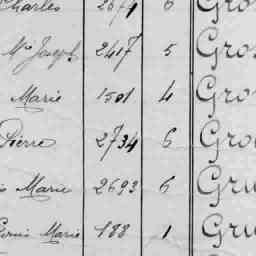 Charles 2674 6 Gro
Me Joseph 2417 5 Gro
Marie 1501 4 Gro
Pierre 2734 6 Gro
Marie 2693 6 Gru
Marie 188 1 Gru